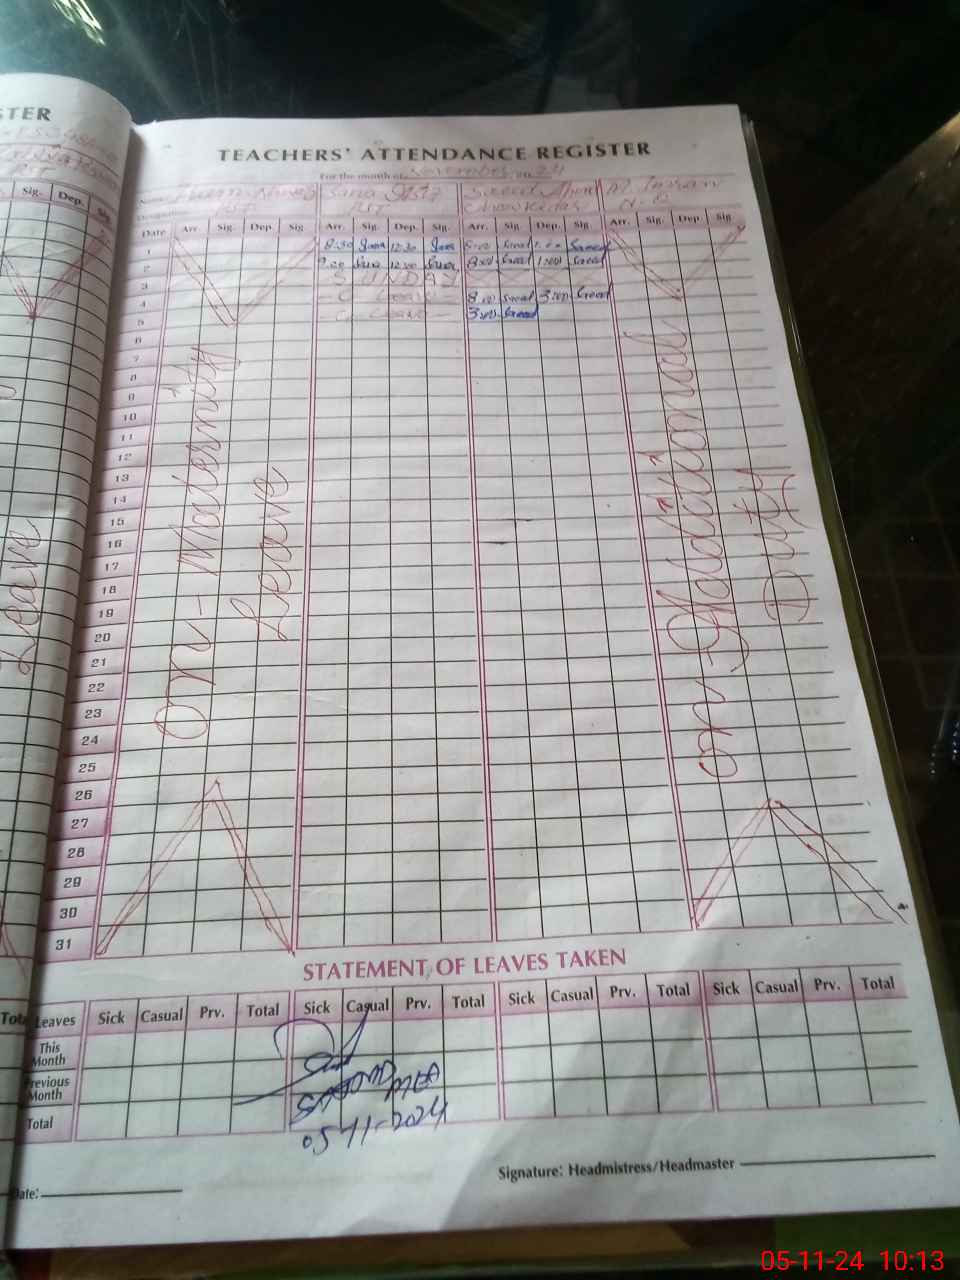 STER
TEACHERS' ATTENDANCE REGISTER
For the month of November 24
Name
Sana
Saeed Ahmed
M. Imran
Chowkidar
Sig. Dep. Sig
Date Arr. Sig. Dep. Sig Arr. Sig. Dep. Sig. Arr. Sig Dep. Sig Arr. Sig. Dep. Sig
1 8.30 Sana 12.30 Sana Saeed 1.00 Saeed
2 Sana Sana 8.00 Saeed 1.00 Saeed
3 SUNDAY
4 - C. Leave - 8.00 Saeed 3.00 Saeed
5 - C. Leave - Saeed
6
7
8
9
10
11
12
13
14
15
16
17
18
19
20
21
22
23
24
25
26
27
28
29
30
31
Leave
on - Maternity
Leave
on
Duty
STATEMENT OF LEAVES TAKEN
Leaves Sick Casual Prv. Total Sick Casual Prv. Total Sick Casual Prv. Total Sick Casual Prv. Total
This Month
Previous Month
Total
MEA
05-11-2024
Signature: Headmistress/Headmaster
Date:
05-11-24 10:13